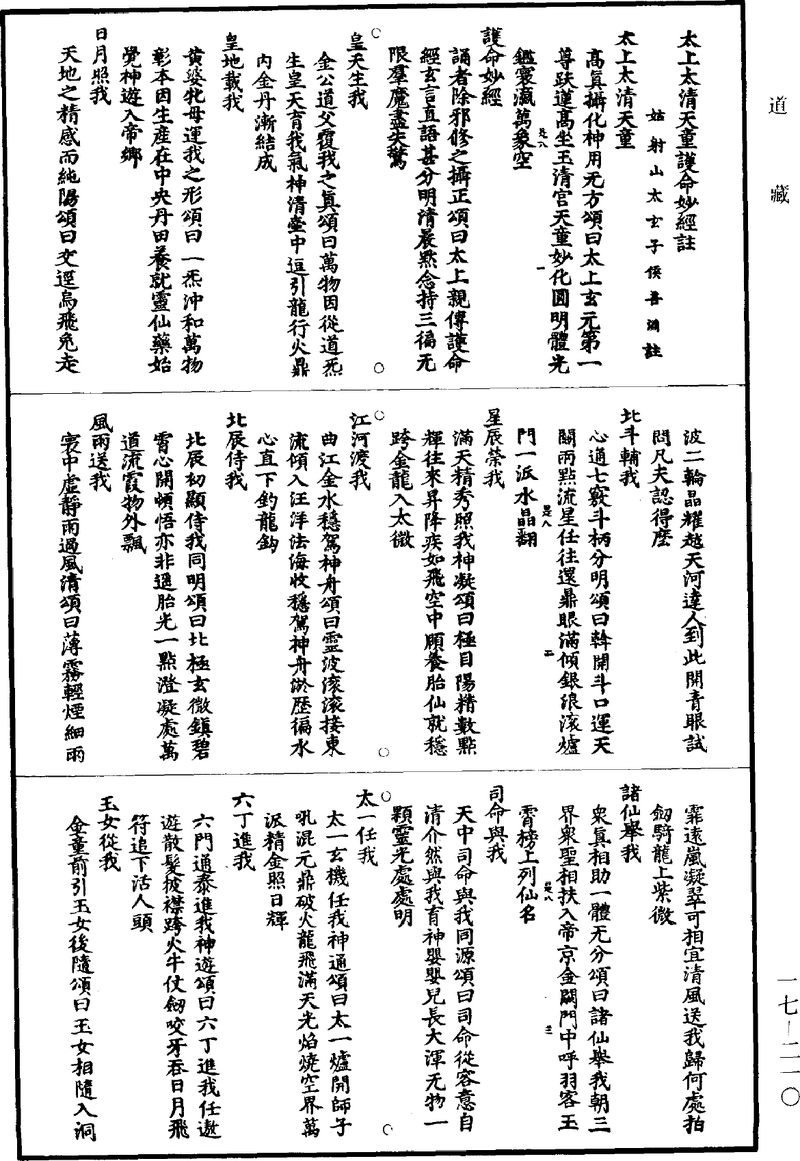 道藏
太上太清天童護命妙經註
姑射山太玄子侯善淵註
太上太清天童
高真攝化神用无方頌曰太上玄元第一
尊跃蓮高坐玉清宫天童妙化圓明體光
鑑寰瀛萬象空
護命妙經
誦者除邪修之攝正頌曰太上親傳護命
經玄言直語甚分明清晨黙念持三徧无
限羣魔盡失驚
皇天生我
金公道父覆我之真頌曰萬物因從道炁
生皇天育我氣神清壷中逗引龍行火鼎
内金丹漸結成
皇地載我
黄婆牝母運我之形頌曰一炁沖和萬物
彰本因生産在中央丹田養就靈仙藥始
覺神遊入帝鄉
日月照我
天地之精感而純陽頌曰交逕烏飛兔走
波二輪晶耀越天河達人到此開青眼試
問凡夫認得麽
北斗輔我
心通七竅斗柄分明頌曰斡開斗口運天
關兩點流星任往還鼎眼滿傾銀浪滚爐
門一派水晶翻
星辰榮我
滿天精秀照我神凝頌曰極目陽精數點
輝往來昇降疾如飛空中願養胎仙就穩
跨金龍入太微
江河渡我
曲江金水穩駕神舟頌曰靈波滚滚接東
流傾入汪洋法海收穩駕神舟游歴徧水
心直下釣龍鈎
北辰侍我
北辰初顯侍我同明頌曰北極玄微鎮碧
霄心開頓悟亦非遥胎光一點澄凝處萬
道流霞物外飄
風雨送我
寰中虚靜雨過風清頌曰薄霧輕煙細雨
霏遠嵐凝翠可相宜清風送我歸何處拍
劒騎龍上紫微
諸仙舉我
衆真相助一體无分頌曰諸仙舉我朝三
界衆聖相扶入帝京金闕門中呼羽客玉
霄榜上列仙名
司命與我
天中司命與我同源頌曰司命從容意自
清介然與我育神嬰嬰兒長大渾无物一
顆靈光處處明
太一任我
太一玄機任我神通頌曰太一爐開師子
吼混元鼎破火龍飛滿天光焰燒空界萬
派精金照日輝
六丁進我
六門通泰進我神遊頌曰六丁進我任遨
遊散髮披襟跨火牛仗劒咬牙吞日月飛
符追下活人頭
玉女從我
金童前引玉女後隨頌曰玉女相隨入洞
一七—二一〇